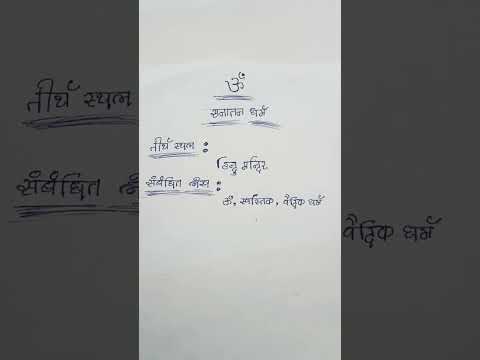 ॐ
सनातन धर्म
तीर्थ स्थल :
हिन्दु मन्दिर
संबंधित लेख :
ॐ, स्वस्तिक, वैदिक धर्म